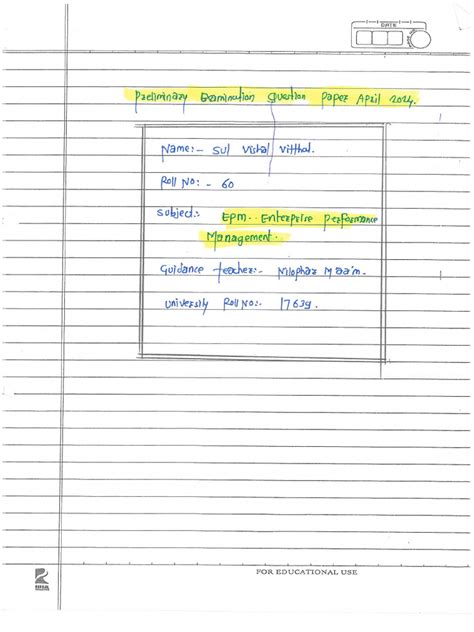 DATE
Preliminary Examination Question Paper April 2024.
Name:- Sul Vishal Vitthal.
Roll No:- 60
Subject:- Epm. Enterprise Performance
Management.
Guidance teacher:- Nilophar Maa'm.
University Roll No:- 17639.
FOR EDUCATIONAL USE